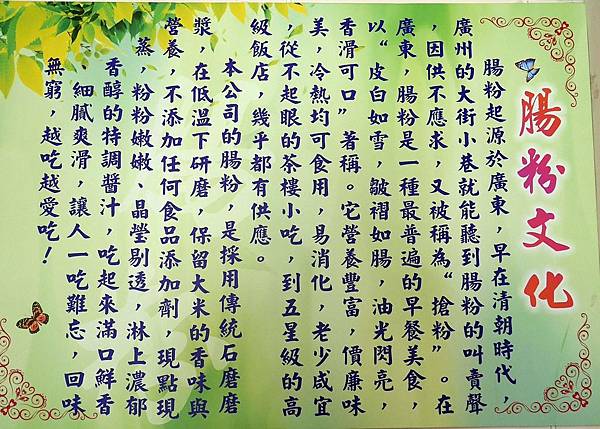 腸粉文化
腸粉起源於廣東，早在清朝時代，
廣州的大街小巷就能聽到腸粉的叫賣聲
，因供不應求，又被稱為“搶粉”。在
廣東，腸粉是一種最普遍的早餐美食，
以“皮白如雪，皺褶如腸，油光閃亮，
香滑可口”著稱。它營養豐富，價廉味
美，冷熱均可食用，易消化，老少咸宜
，從不起眼的茶樓小吃，到五星級的高
級飯店，幾乎都有供應。
本公司的腸粉，是採用傳統石磨磨
漿，在低溫下研磨，保留大米的香味與
營養，不添加任何食品添加劑，現點現
蒸，粉粉嫩嫩、晶瑩剔透，淋上濃郁
香醇的特調醬汁，吃起來滿口鮮香
細膩爽滑，讓人一吃難忘，回味
無窮，越吃越愛吃！